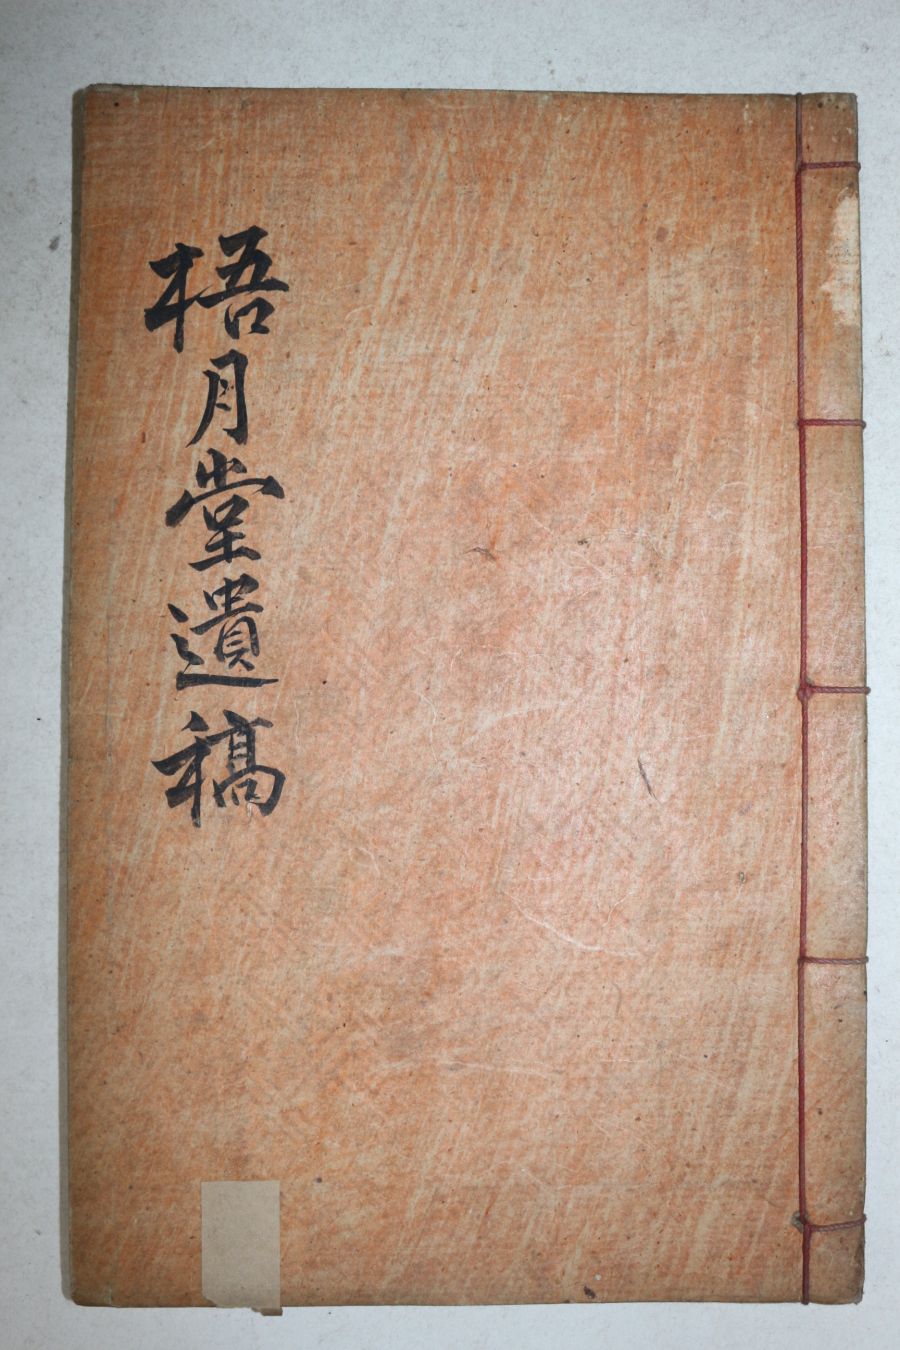 梧月堂遺稿